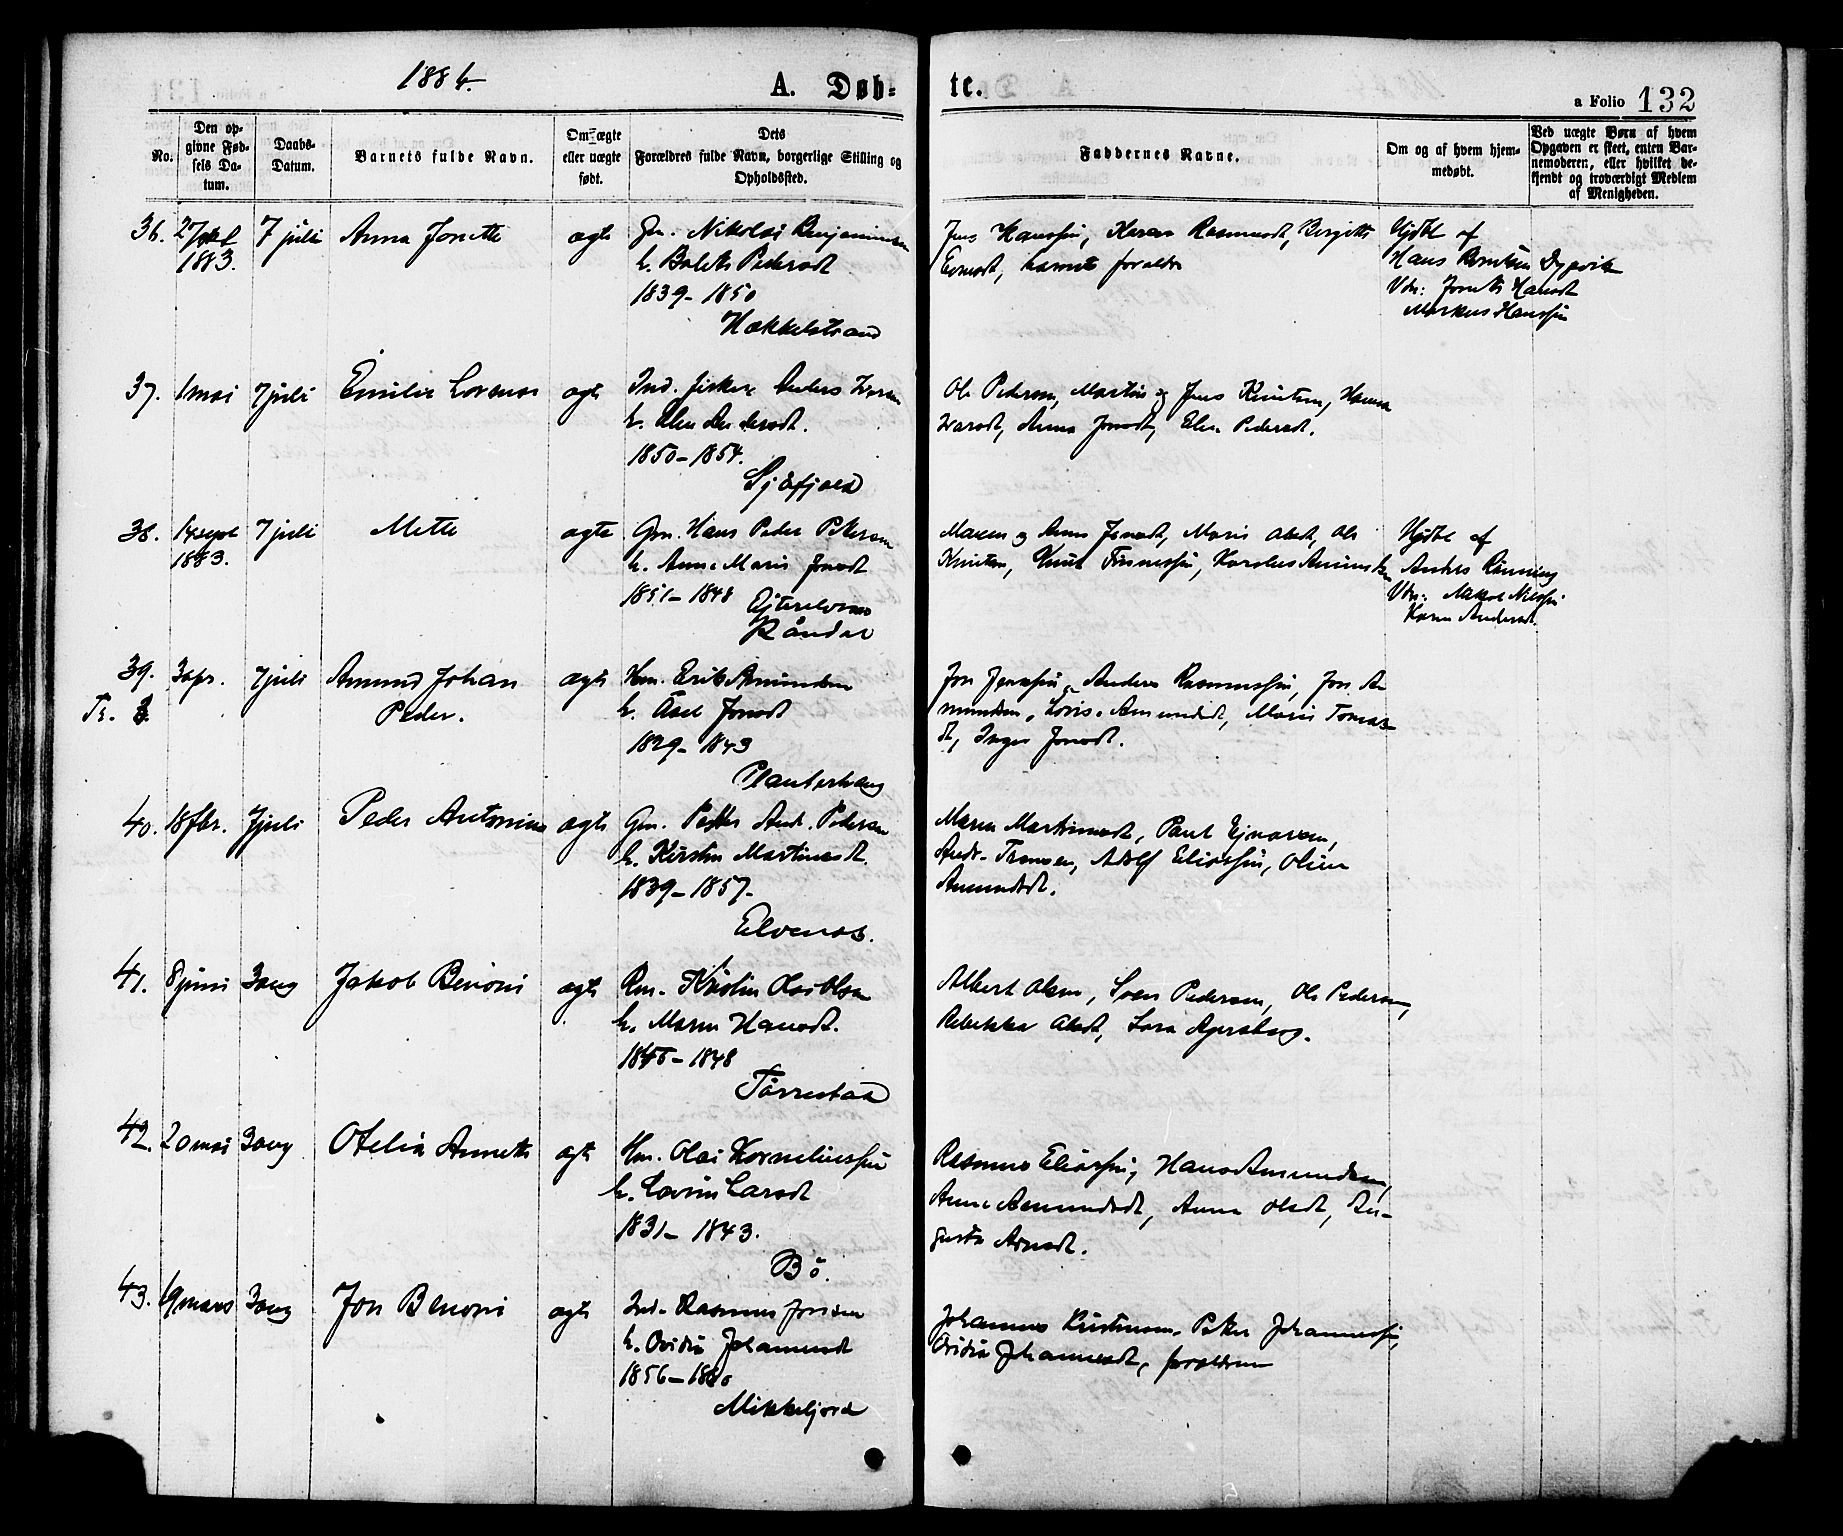 1884.
A. Døb-
te.
a Folio 132
No.
Den op-
givne Fød-
sels Da-
tum.
Daabs-
Datum.
Barnets fulde Navn.
Om ægte
eller uægte
født.
Dets
Forældres fulde Navn, borgerlige Stilling og
Opholdssted.
Faddernes Navne.
Om og af hvem hjem-
medøbt.
Ved uægte Børn af hvem
Opgaven er skeet, enten Bar-
nemoderen, eller hvilket be-
kjendt og troværdigt Medlem
af Menigheden.
36.
1883.
7 juli
Anna Jonette
ægte
Gm. Nikolai Benjaminsen
h. Bolette Pedersdt
1839 - 1850
Hækkelstrand
Jens Hanssøn, Karen Rasmusdt, Birgitte
barnets forældre
Hjdbt af
Hans Berntsen Dypvik
Vdn: Jonette Hansdt
Markus Hanssøn
37.
1 mai
7 juli
Emilie Lovense
ægte
Ind. fisker Anders Ivarsen
h. Elen Andersdt.
1850 - 1854.
Sjåfjord
Ole Pedersen, Martin og Jens Knutsen, Hanna
Ivarsdt, Anna Jonsdt, Elen Pedersdt.
38.
14 sept
1883.
7 juli
Mette
ægte
Gm. Hans Peder Petersen
h. Anne Marie Jonsdt
1851 - 1848
Råndal
Maren og Anne Jonsdt, Marie Olsdt, Ole
Knutsen, Knut Finnessøn, Karolus Amundsen
Hjdbt af
Anders Rånning
Vdn: Nils Nilssøn
Karen Andersdt.
39.
3 apr.
7 juli
Amund Johan
Peder.
ægte
Hm. Erik Amundsen
h. Åsel Jonsdt
1829 - 1843
Plauterhaug
Jon Jonssøn, Anders Rasmussøn, Jon A-
mundsen, Lovise Amundsdt, Marie Tomas-
dt, Inger Jonsdt.
Tr. 3
40.
18 fbr.
7 juli
Peder Antonius
ægte
Gm. Petter Andr. Pedersen
h. Kirsten Martinusdt.
1839 - 1857.
Elvenes.
Maren Martinusdt, Paul Ejnarsen,
Andr. Tomsen, Adolf Eliassøn, Oline
Amundsdt.
41.
8 juni
3 aug
Jakob Benoni
ægte
Rm. Kristen Olai Olsen
h. Maren Hansdt.
1845 - 1848
Tørrestad
Albert Olsen, Sven Pedersen, Ole Pedersen,
Rebekka Olsdt, Sara Agersborg.
42.
20 mai
3 aug
Ofelia Annette
ægte
Hm. Olai Korneliussøn
h. Lovise Larsdt
1831 - 1843.
Bø.
Rasmus Eliassøn, Hans Amundsen,
Anne Amundsdt, Anna Olsdt, Au-
gusta Arnsdt.
43.
19 mars
3 aug
Jon Benoni
ægte
Ind. Rasmus Jonsen
h. Ovidia Johannesdt
1856 - 1860
Mikkeljord
Johannes Kristensen, Peter Johannessøn,
Ovidia Johannesdt, forældrene